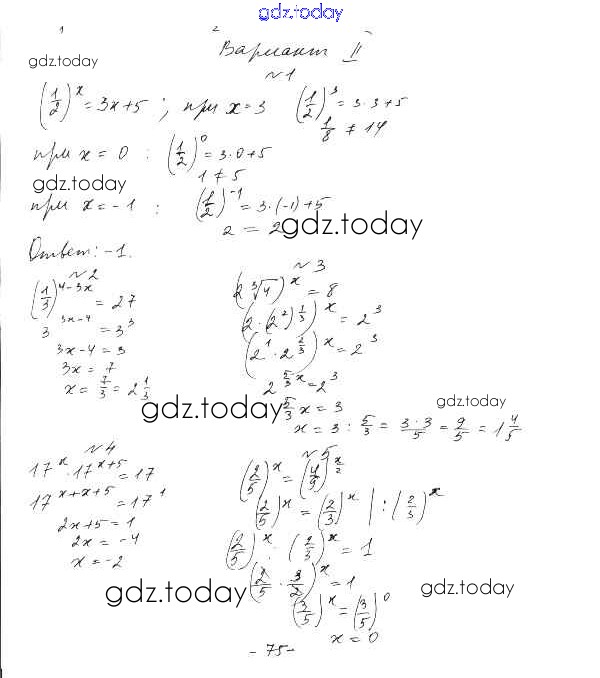 gdz.today
1 2
Вариант II
gdz.today
№1
(1/2)^x = 3x+5 ; при x = 3 (1/2)^3 = 3·3+5
1/8 ≠ 14
при x = 0 : (1/2)^0 = 3·0+5
1 ≠ 5
gdz.today
при x = -1 : (1/2)^-1 = 3·(-1)+5
2 = 2
gdz.today
Ответ: -1.
№2
(1/3)^4-3x = 27
3^3x-4 = 3^3
3x-4 = 3
3x = 7
x = 7/3 = 2 1/3
№3
(2 ∛4)^x = 8
(2·(2^2)^1/3)^x = 2^3
(2^1 · 2^2/3)^x = 2^3
2^5/3 x = 2^3
gdz.today
gdz.today
5/3 x = 3
x = 3 : 5/3 = 3·3/5 = 9/5 = 1 4/5
№4
17^x · 17^x+5 = 17
17^x+x+5 = 17^1
2x+5 = 1
2x = -4
x = -2
№5
(2/5)^x = (4/9)^x/2
(2/5)^x = (2/3)^x | : (2/3)^x
(2/5)^x : (2/3)^x = 1
(2/5 · 3/2)^x = 1
gdz.today
gdz.today
(3/5)^x = (3/5)^0
x = 0
- 75 -